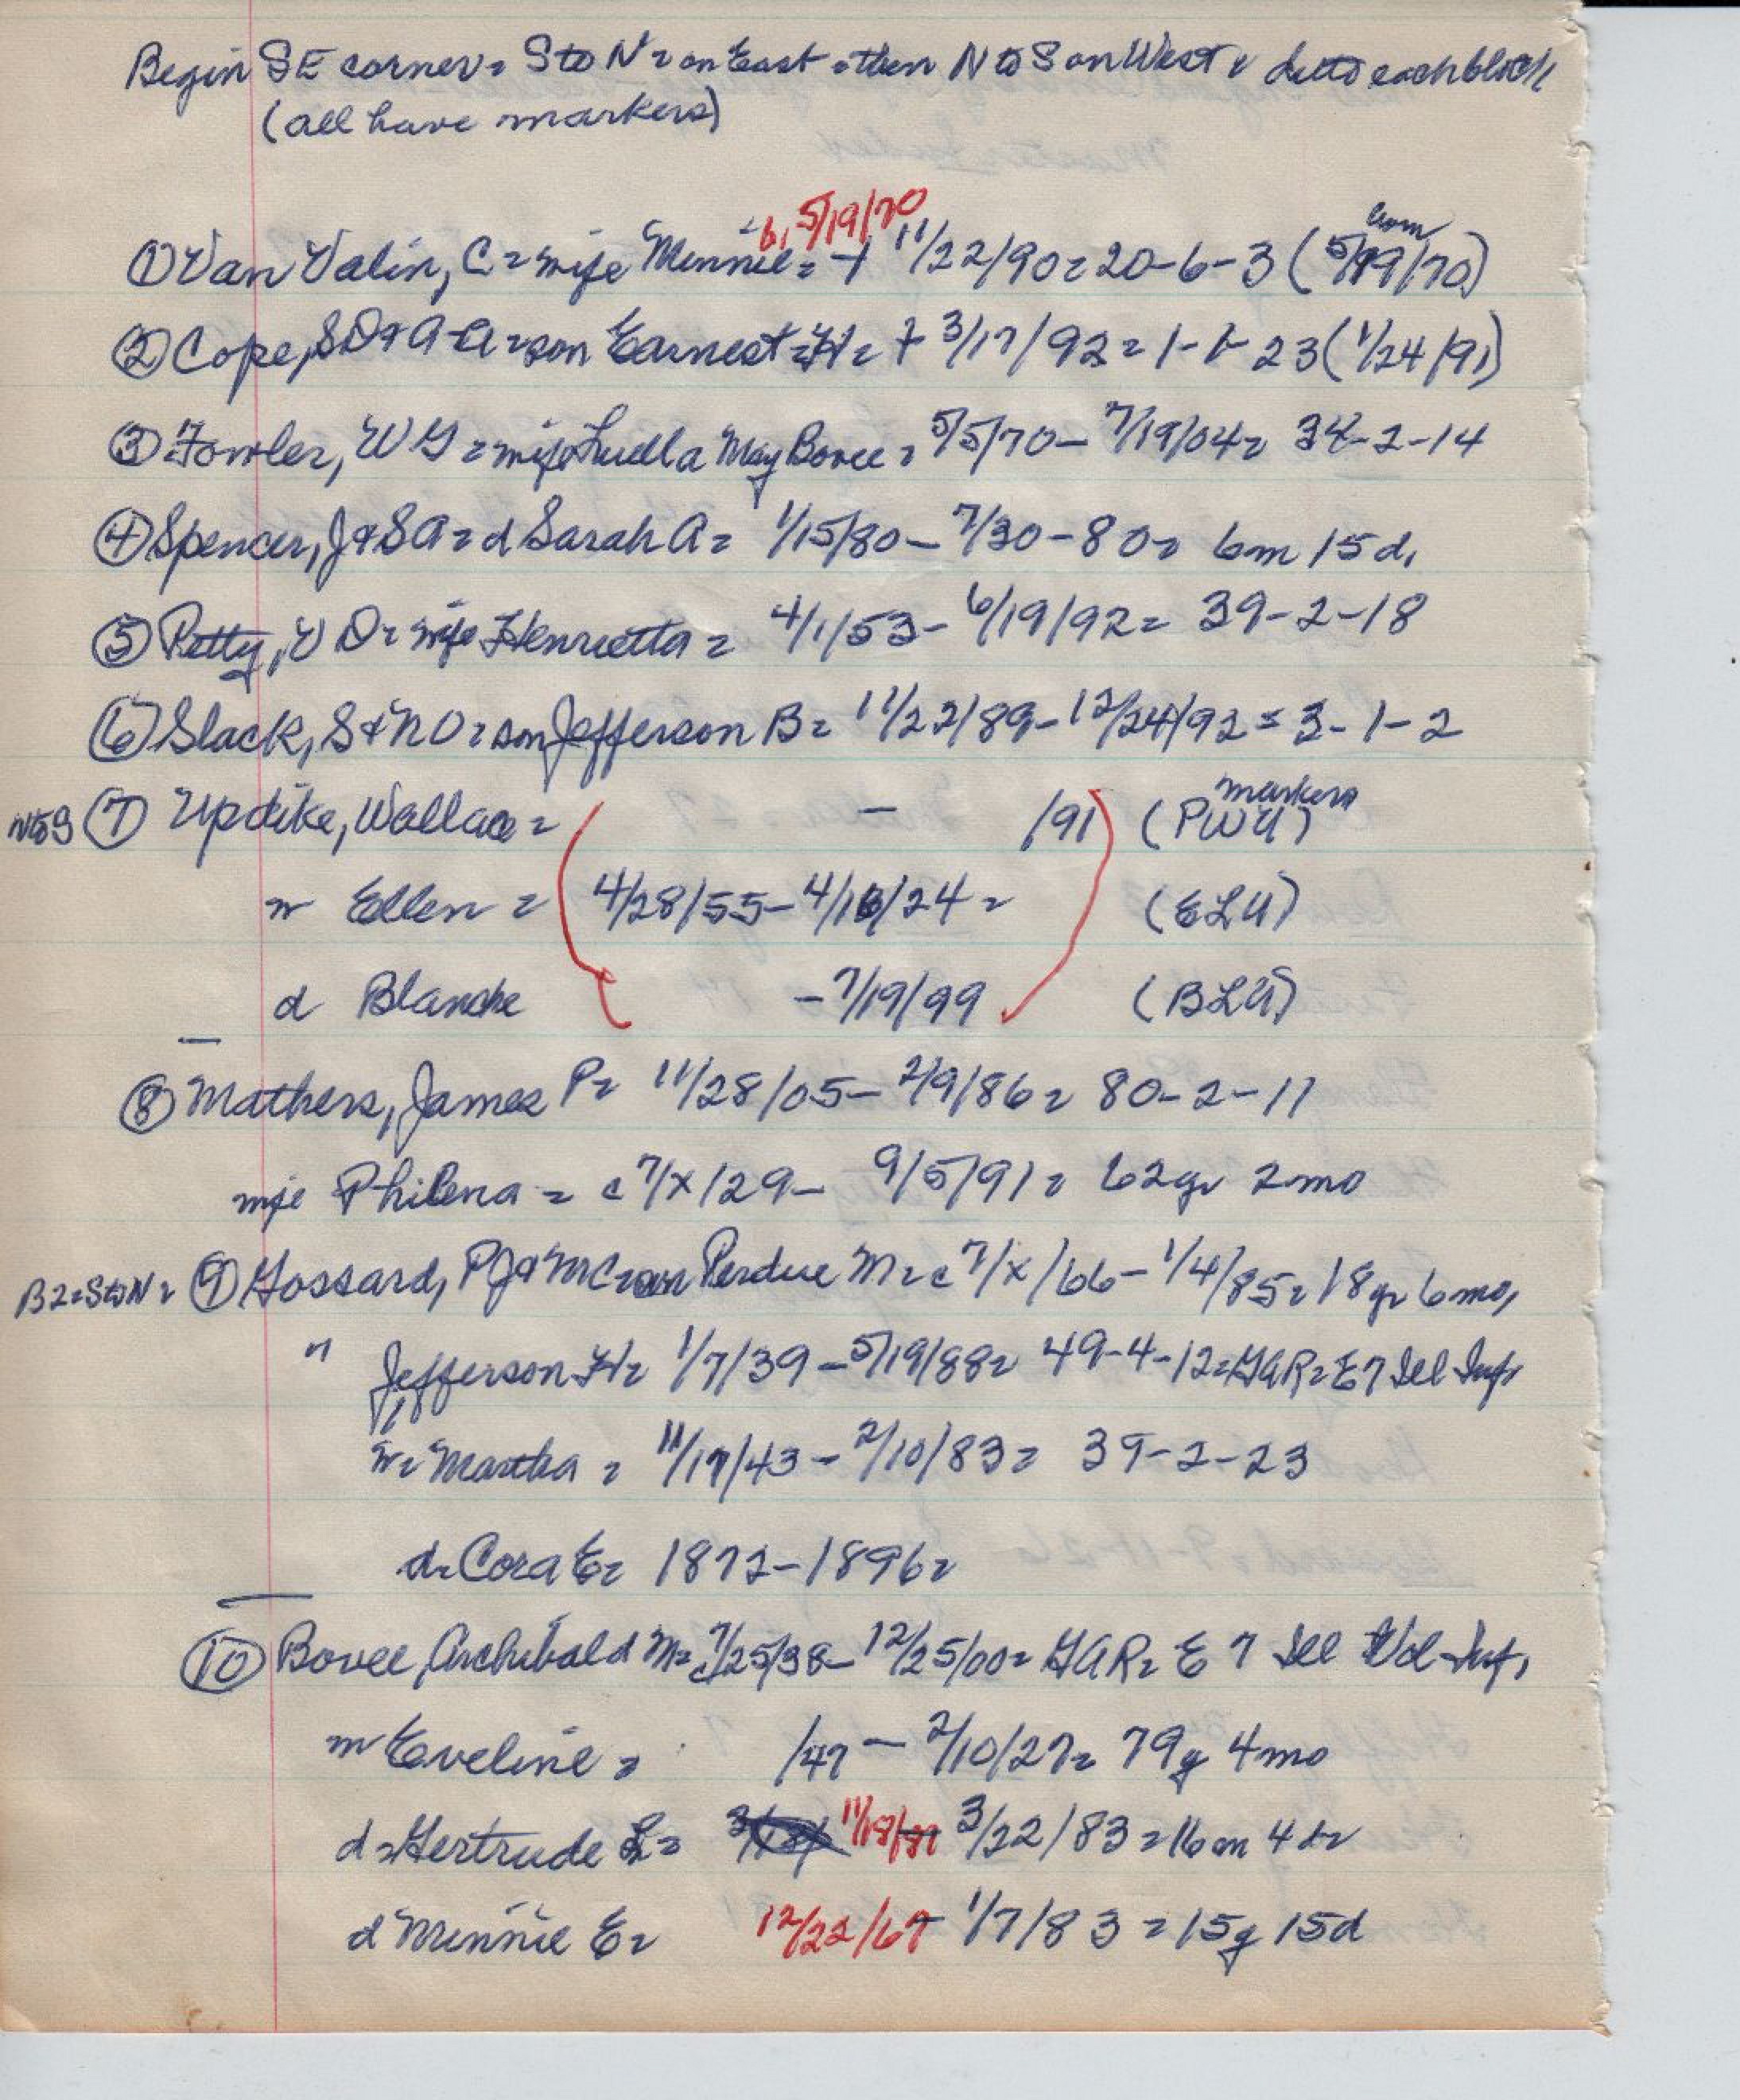 Begin SE corner = S to N = on East = then N to S on West & ditto each block
(all have markers)
b, 5/19/70
born
① Van Valin, C = wife Minnie = + 11/22/90 = 20-6-3 (5/19/70)
② Cope, S D & A A = son Earnest H = + 3/17/92 = 1-1-23 (1/24/91)
③ Fowler, W G = wife Luella May Bovee = 5/5/70 - 7/19/04 = 34-2-14
④ Spencer, J & S A = d Sarah A = 1/15/80 - 7/30-80 = 6m 15d,
⑤ Petty, V D = wife Henrietta = 4/1/53 - 6/19/92 = 39-2-18
⑥ Slack, S & N O = son Jefferson B = 11/22/89 - 12/24/92 = 3-1-2
markers
N to S ⑦ Updike, Wallace = - /91 (PWU)
w Ellen = 4/28/55 - 4/16/24 = (ELU)
d Blanche - 7/19/99 (BLU)
⑧ Mathers, James P = 11/28/05 - 2/9/86 = 80-2-11
wife Philena = c 7/x/29 - 9/5/91 = 62y 2mo
B2 = S to N = ⑨ Gossard, P J & M C = son Perdue M = c 7/x/66 - 1/4/85 = 18yr 6mo,
" Jefferson H = 1/7/39 - 5/19/88 = 49-4-12 = GAR = E 7 Ill Inf,
" w = Martha = 11/17/43 - 2/10/83 = 39-2-23
d = Cora E = 1872-1896 =
⑩ Bovee, Archibald M = 7/25/38 - 12/25/00 = GAR = E 7 Ill Vol Inf,
w Eveline = /47 - 2/10/27 = 79y 4mo
d = Gertrude L = 11/18/81 3/22/83 = 16m 4d =
d Minnie E = 12/22/67 - 1/7/83 = 15y 15d